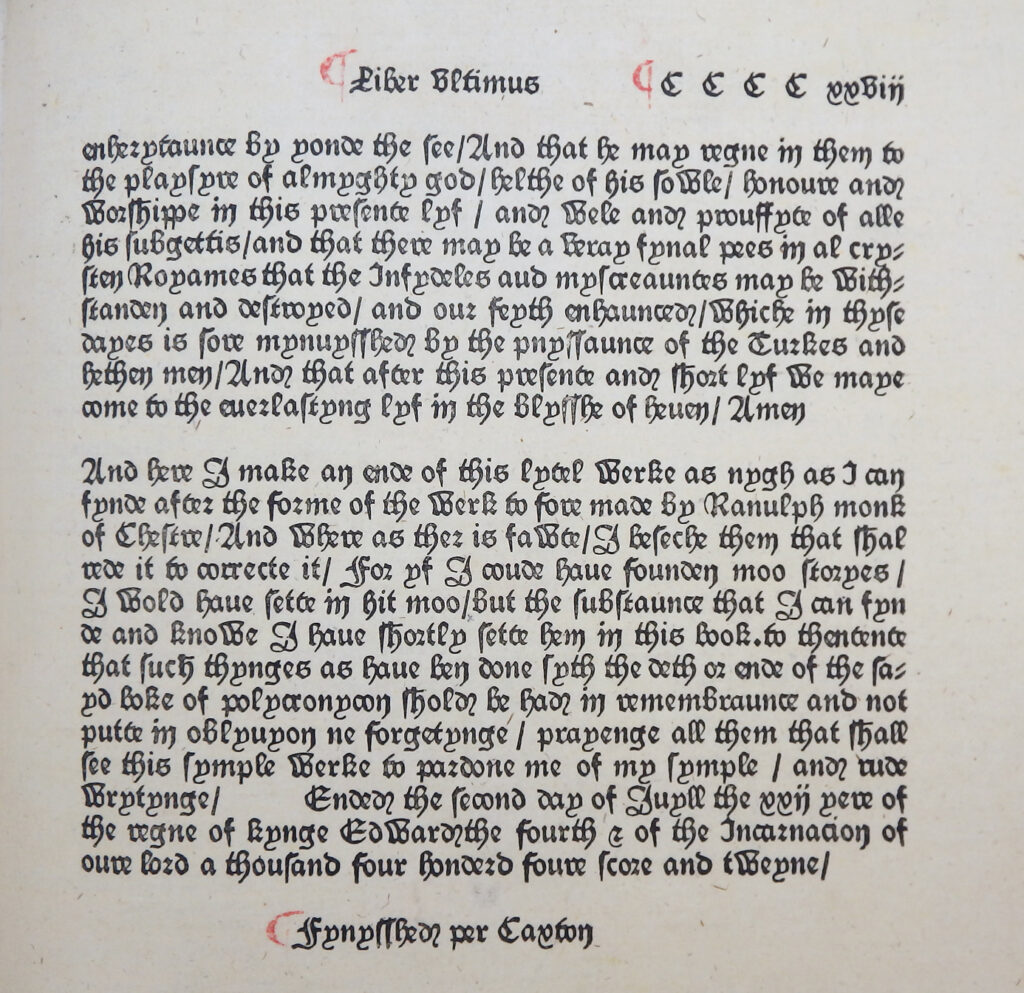 Liber Vltimus C C C C xxviij
enherytaunce by yonde the see/And that he may regne in them to
the playsyre of almyghty god/helthe of his sowle/ honoure and
worshippe in this presente lyf / and wele and prouffyte of alle
his subgettis/and that there may be a veray fynal pees in al cry-
sten Royames that the Infydeles aud myscreauntes may be with-
standen and destroyed/ and our feyth enhaunced/whiche in thyse
dayes is sore mynuysshed by the pnyssaunce of the Turkes and
hethen men/And that after this presente and short lyf we maye
come to the euerlastyng lyf in the blysshe of heuen/ Amen
And here I make an ende of this lytel werke as nygh as I can
fynde after the forme of the werk to fore made by Ranulph monk
of Chestre/And where as ther is fawte/I beseche them that shal
rede it to correcte it/ For yf I coude haue founden moo storyes /
I wold haue sette in hit moo/but the substaunce that I can fyn
de and knowe I haue shortly sette hem in this book.to thentente
that such thynges as haue ben done syth the deth or ende of the sa-
yd boke of polycronycon shold be had in remembraunce and not
putte in oblyuyon ne forgetynge / prayenge all them that shall
see this symple werke to pardone me of my symple / and rude
wrytynge/ Ended the second day of Juyll the xxij yere of
the regne of kynge Edward the fourth & of the Incarnacion of
oure lord a thousand four honderd foure score and tweyne/
Fynysshed per Caxton